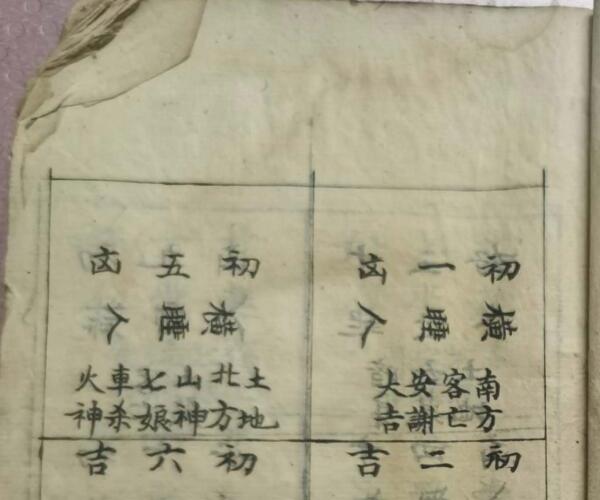 初一凶
橫睡人
南方
客亡
安謝
大吉
初二吉
初五凶
橫睡人
土地
北方
山神
七娘
車杀
火神
初六吉